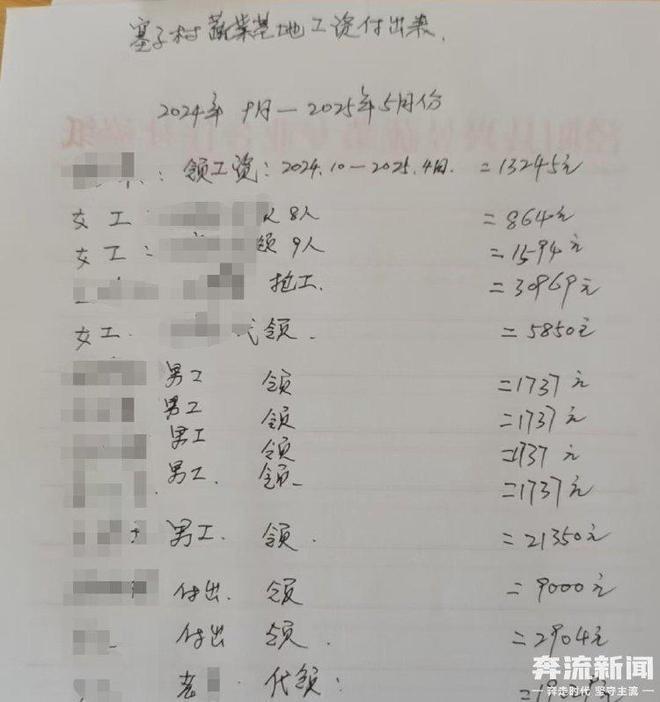 寨子村蔬菜基地工资付出表.
2024年 9月—2025年5月份
: 领工资: 2024.10—2025.4月. =13245元
女工 8人 =864元
女工: 领 9人 =1594元
工. =30969元
女工 代领. =5850元
男工 领 =1737元
男工 领 =1737元
男工 领 =1737元
男工. 领 =1737元
男工. 领. =21350元
付出. 领 =9000元
付出 领. =2904元
老 代领:
奔流新闻
奔走时代 坚守主流